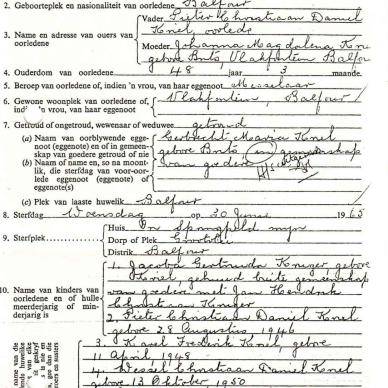 2. Geboorteplek en nasionaliteit van oorledene Balfour
3. Name en adresse van ouers van oorledene
Vader Pieter Christiaan Daniel
Knel, oorlede
Moeder Johanna Magdalena Kne
gebore Brits, Vlakfontein Balfou
4. Ouderdom van oorledene 48 jaar 3 maande.
5. Beroep van oorledene of, indien 'n vrou, van haar eggenoot Messelaar
6. Gewone woonplek van oorledene of, indien 'n vrou, van haar eggenoot Vlakfontein, Balfour
7. Getroud of ongetroud, wewenaar of weduwee getroud
(a) Naam van oorblywende eggenoot (eggenote) en of in gemeenskap van goedere getroud of nie
Maria Knel
gebore Brits in gemeenskap
van goedere
(b) Naam of name en, so na moontlik, die sterfdag van voor-oorlede eggenoot (eggenote) of eggenote(s)
(c) Plek van laaste huwelik Balfour
8. Sterfdag Woensdag op 30 Junie 1965
9. Sterfplek
Huis In Springfield myn
Dorp of Plek Grootvlei
Distrik Balfour
10. Name van kinders van oorledene en of hulle meerderjarig of minderjarig is
1. Jacoba Gertruida Kruger, gebore
Knel, getroud buite gemeenskap
van goedere met Jan Hendrik
Christiaan Kruger
2. Pieter Christiaan Daniel Knel
gebore 28 Augustus, 1946
3. Karel Frederik Knel, gebore
11 April, 1948
4. Wessel Christiaan Daniel Knel
gebore 13 Oktober, 1950